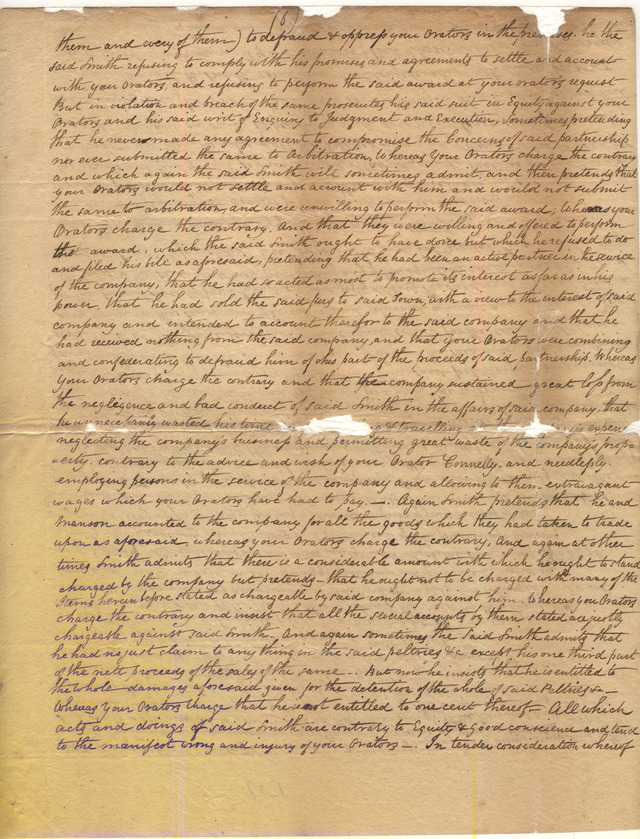 (8)
them and every of them) to defraud & oppress your Orators in the premises. he the
said Smith refusing to comply with his promises and agreements to settle and account
with your Orators, and refusing to perform the said award at your orators request
But in violation and breach of the same prosecutes his said suit in Equity against your
Orators and his said writ of Enquiry to Judgment and Execution, Sometimes pretending
that he never made any agreement to compromise the Concerns of said partnership
nor ever submitted the same to Arbitration, Whereas Your Orators charge the contrary
and which again the said Smith will sometimes admit, and then pretends that
your Orators would not settle and account with him and would not submit
the same to arbitration, and were unwilling to perform the said award; Whereas your
Orators charge the contrary. And that they were willing and offered to perform
that award, which the said Smith ought to have done but which he refused to do
and filed his bill as aforesaid, pretending that he had been an active partner in the service
of the company, that he had so acted as most to promote its interest as far as in his
power, that he had sold the said furs to said Town, with a view to the interest of said
company and intended to account therefor to the said company and that he
had received nothing from the said company, and that your Orators were combining
and confederating to defraud him of his part of the proceeds of said partnership. Whereas
your Orators charge the contrary and that the company sustained great loss from
the negligence and bad conduct of said Smith in the affairs of said company. that
he unnecessarily wasted his time & travelling at expence
neglecting the company's business and permitting great waste of the company's prop=
=erty. contrary to the advice and wish of your Orator Connelly. and needlessly
employing persons in the service of the company and allowing to them extravagant
wages which your Orators have had to pay. —. Again Smith pretends that he and
Manson accounted to the company for all the goods which they had taken to trade
upon as aforesaid, whereas your Orators charge the contrary, And again at other
times Smith admits that there is a considerable amount with which he ought to stand
charged by the company but pretends - that he ought not to be charged with many of the
Items herein before stated as chargeable by said company against him. Whereas your Orators
charge the contrary and insist that all the several accounts by them stated are justly
chargeable against said Smith. And again sometimes the said Smith admits that
he had no just claim to any thing in the said peltries &c except his one third part
of the nett proceeds of the sales of the same.. But now he insists that he is entitled to
the whole damages aforesaid given for the detention of the whole of said Peltries &c
Whereas your Orators charge that he is not entitled to one cent thereof= All which
acts and doings of said Smith are contrary to Equity & Good conscience and tend
to the manifest wrong and injury of your Orators —. In tender consideration whereof